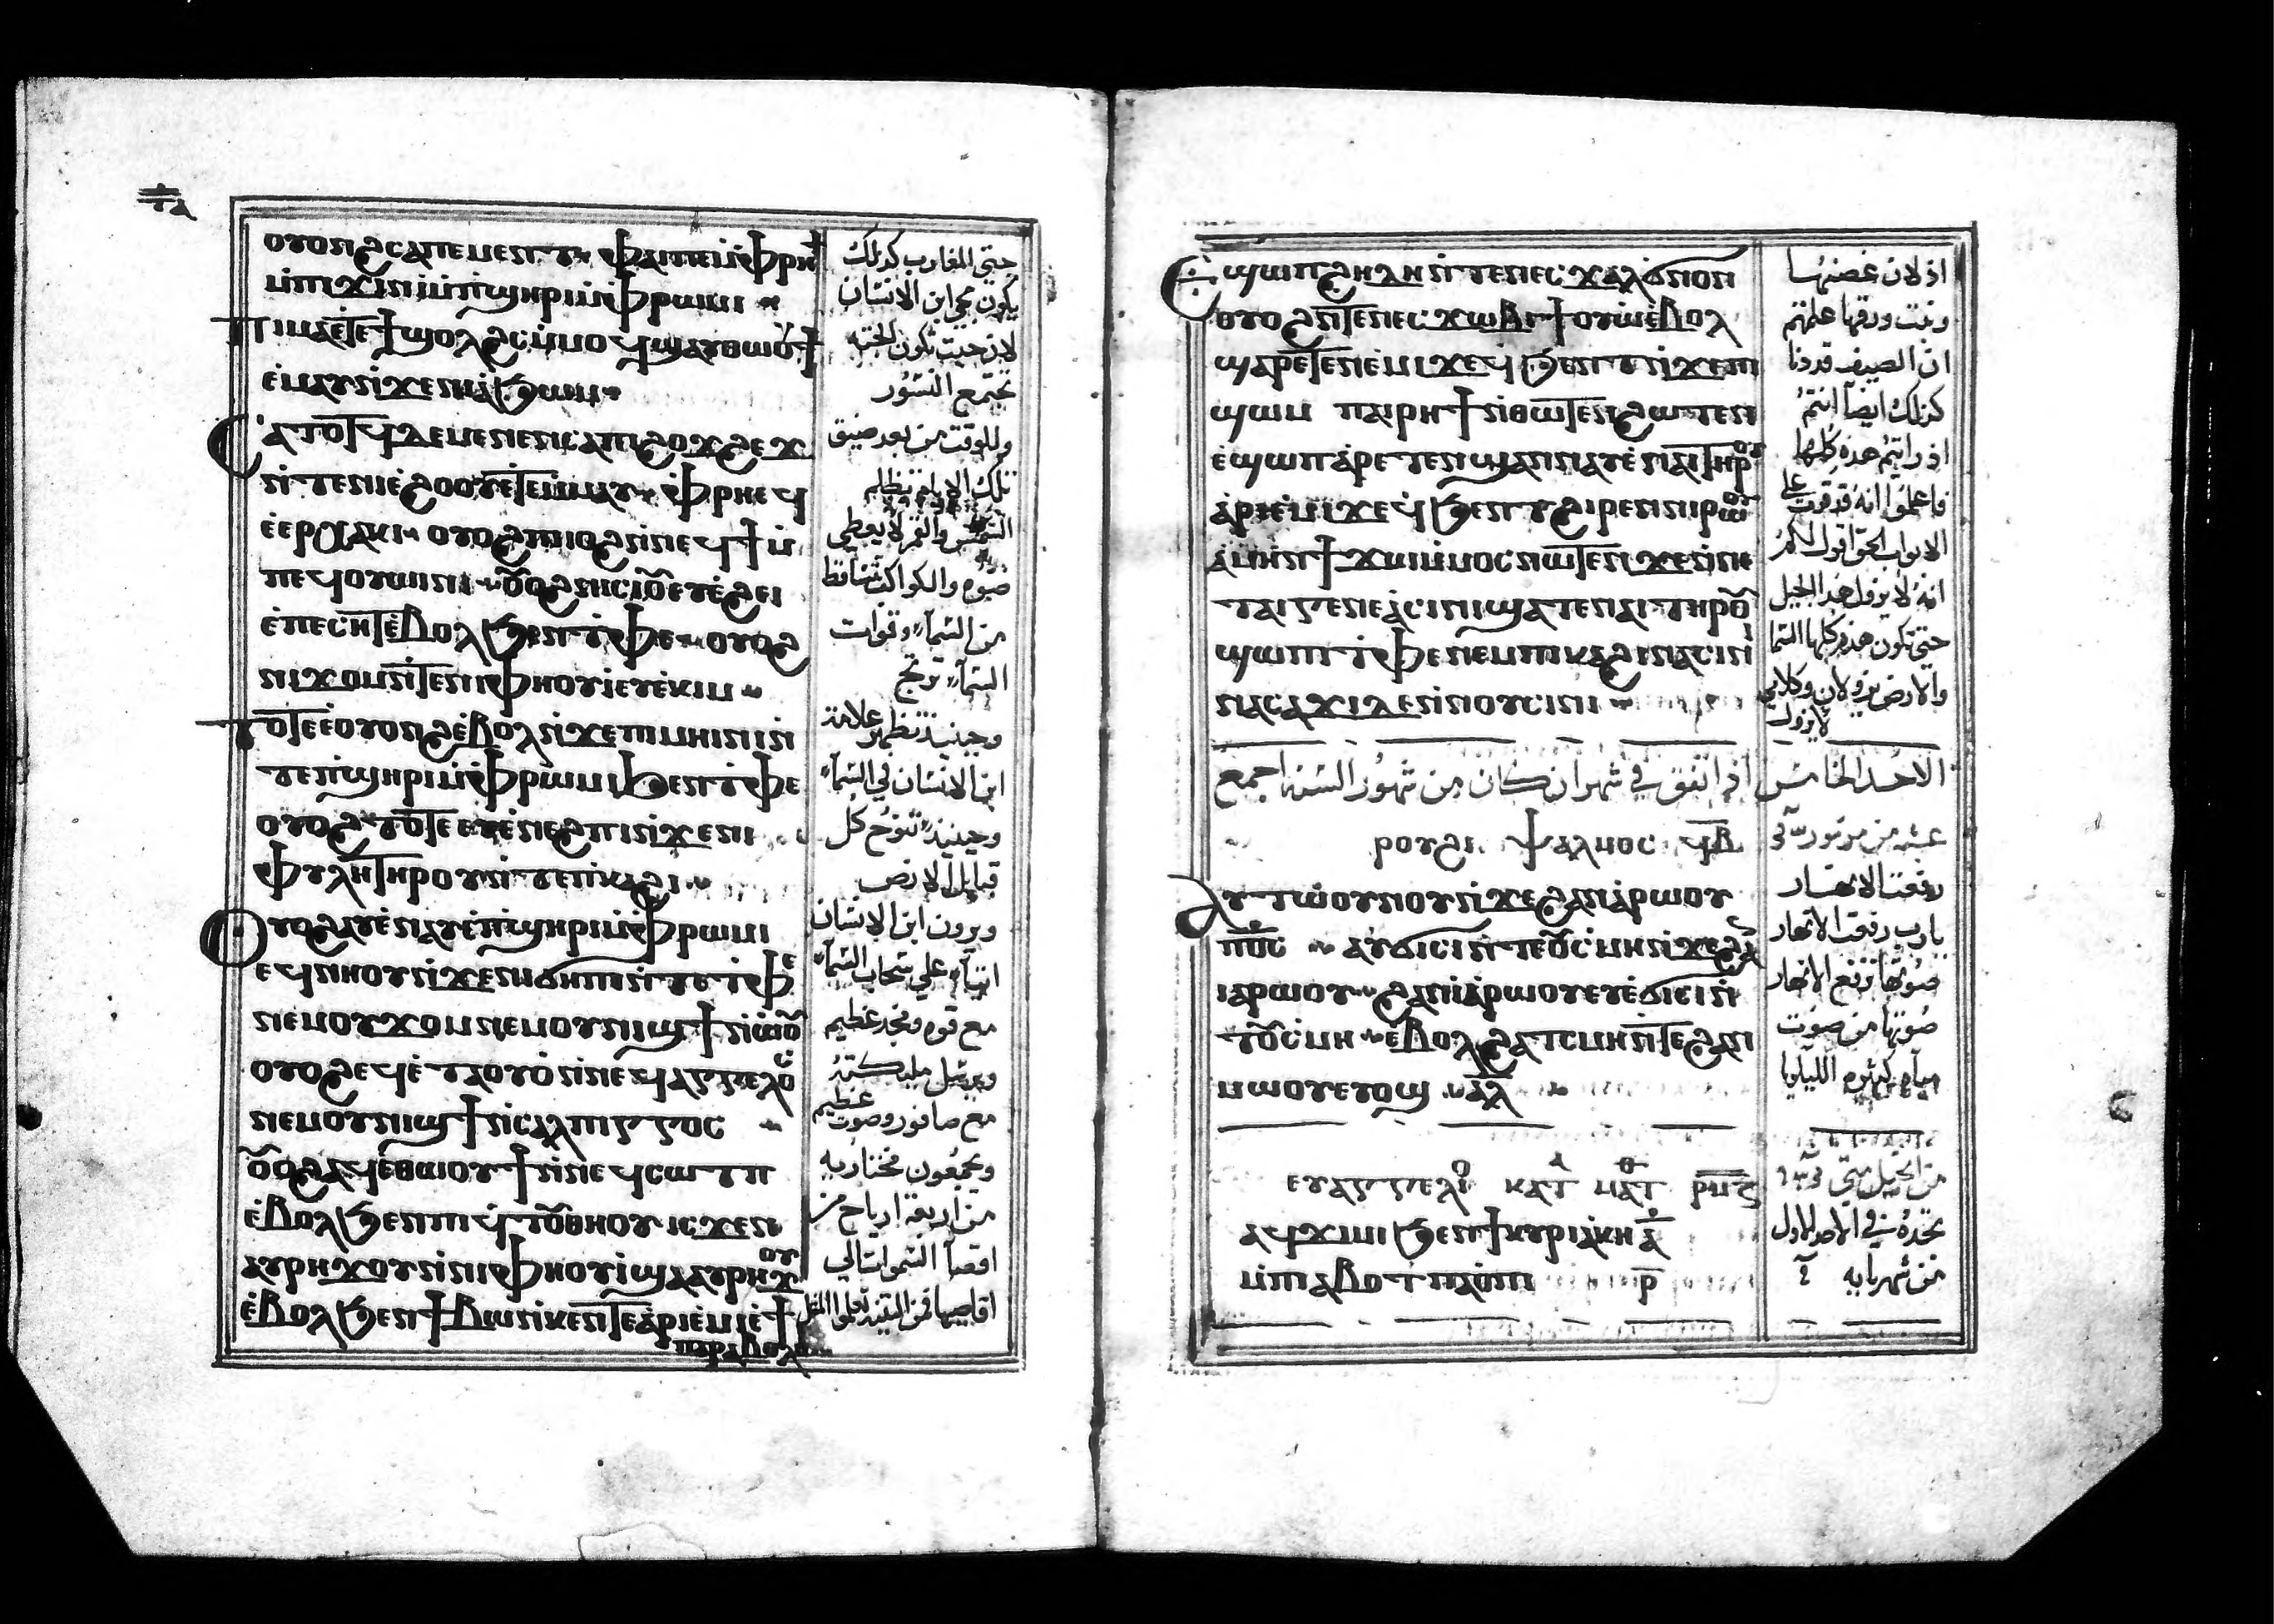 ⲟⲩⲟⲛϩ ⲥⲁⲡⲉⲙⲉⲛⲧ ⲫⲁⲓ ⲡⲉ ⲙ̀ⲫⲣⲏϯ
ⲙ̀ⲡϫⲓⲛⲓ̀ ⲙ̀ⲡϣⲏⲣⲓ ⲙ̀ⲫⲣⲱⲙⲓ
ⲡⲓⲙⲁ ⲉ̀ⲧⲉ ϯϣⲟⲗϩⲥ ⲙ̀ⲙⲟϥ ϣⲁⲩⲑⲱⲟⲩϯ
ⲉ̀ⲙⲁⲩ ⲛ̀ϫⲉ ⲛⲓⲁ̀ϧⲱⲙ
ⲥⲁⲧⲟⲧϥ ⲇⲉ ⲙⲉⲛⲉⲛⲥⲁ ⲡⲓϩⲟϫϩⲉϫ
ⲛ̀ⲧⲉ ⲛⲓⲉ̀ϩⲟⲟⲩ ⲉ̀ⲧⲉⲙ̀ⲙⲁⲩ ⲫⲣⲏ ⲉϥ
ⲉ̀ⲉⲣⲭⲁⲕⲓ ⲟⲩⲟϩ ⲡⲓⲓⲟϩ ⲛ̀ⲛⲉϥϯ ⲙ̀
ⲡⲉϥⲟⲩⲱⲓⲛⲓ ⲟⲩⲟϩ ⲛⲓⲥⲓⲟⲩ ⲉⲩⲉ̀ϩⲉⲓ
ⲉ̀ⲡⲉⲥⲏⲧ ⲉ̀ⲃⲟⲗ ϧⲉⲛ ⲧ̀ⲫⲉ ⲟⲩⲟϩ
ⲛⲓϫⲟⲙ ⲛ̀ⲧⲉ ⲛⲓⲫⲏⲟⲩⲓ̀ ⲉⲩⲉ̀ⲕⲓⲙ
ⲧⲟⲧⲉ ⲉϥⲟⲩⲟⲛϩ ⲉ̀ⲃⲟⲗ ⲛ̀ϫⲉ ⲡⲓⲙⲏⲓⲛⲓ ⲛ̀
ⲧⲉ ⲡϣⲏⲣⲓ ⲙ̀ⲫⲣⲱⲙⲓ ϧⲉⲛ ⲧ̀ⲫⲉ
ⲟⲩⲟϩ ⲧⲟⲧⲉ ⲉⲩⲉ̀ⲛⲉϩⲡⲓ ⲛ̀ϫⲉ ⲛⲓ
ⲫⲩⲗⲏ ⲧⲏⲣⲟⲩ ⲛ̀ⲧⲉ ⲡⲕⲁϩⲓ
ⲟⲩⲟϩ ⲉⲩⲉ̀ⲛⲁⲩ ⲉ̀ⲡϣⲏⲣⲓ ⲙ̀ⲫⲣⲱⲙⲓ
ⲉϥⲛⲏⲟⲩ ϩⲓϫⲉⲛ ⲛⲓϭⲏⲡⲓ ⲛ̀ⲧⲉ ⲧ̀ⲫⲉ
ⲛⲉⲙ ⲟⲩϫⲟⲙ ⲛⲉⲙ ⲟⲩⲛⲓϣϯ ⲛ̀ⲱ̀ⲟⲩ
ⲟⲩⲟϩ ⲉϥⲉ̀ⲧⲁⲟⲩⲟ̀ ⲛ̀ⲛⲉϥⲁⲅⲅⲉⲗⲟⲥ
ⲛⲉⲙ ⲟⲩⲛⲓϣϯ ⲛ̀ⲥⲁⲗⲡⲓⲅⲅⲟⲥ
ⲟⲩⲟϩ ⲉϥⲉ̀ⲑⲱⲟⲩϯ ⲛ̀ⲛⲉϥⲥⲱⲧⲡ
ⲉ̀ⲃⲟⲗ ϧⲉⲛ ⲡⲓϥ̅ ⲧⲟⲩ ⲑⲏⲟⲩ ⲓⲥϫⲉⲛ
ⲁⲩⲣⲏϫⲟⲩ ⲛ̀ⲛⲓⲫⲏⲟⲩⲓ̀ ϣⲁ ⲁⲩⲣⲏϫⲟⲩ
ⲉ̀ⲃⲟⲗ ϧⲉⲛ ϯⲃⲱ ⲛ̀ⲕⲉⲛⲧⲉ ⲁ̀ⲣⲓⲉ̀ⲙⲓ ⲉ̀ϯ
ⲡⲁⲣⲁⲃⲟⲗⲏ
حتى المغارب كذلك
يكون مجي ابن الانسان
لان حيث تكون الجثه
تجتمع النسور
وللوقت من بعد ضيق
تلك الايام تظلم
الشمس والقمر لا يعطي
ضوه والكواكب تتساقط
من السمآء وقوات
السمآء ترتج
وحينيذ تظهر علامة
ابن الانسان في السمآء
وحينيذ تنوح كل
قبايل الارض
ويرون ابن الانسان
اتيآ على سحاب السمآء
مع قوه ومجد عظيم
ويرسل مليكته
مع صافور وصوت عظيم
ويجمعون مختاريه
من اربعة ارياح من
اقصآ السموات الى
اقاصيها فمن التينه تعلموا المثل
ⲉϣⲱⲡ ϩⲏⲇⲏ ⲛ̀ⲧⲉ ⲛⲉⲥϫⲁⲗ ϭⲛⲟⲛ
ⲟⲩⲟϩ ⲛ̀ⲧⲉ ⲛⲉⲥϫⲱⲃⲓ ϯⲟⲩⲱ ⲉ̀ⲃⲟⲗ
ϣⲁⲣⲉⲧⲉⲛⲉ̀ⲙⲓ ϫⲉ ϥϧⲉⲛⲧ ⲛ̀ϫⲉ ⲡⲓ
ϣⲱⲙ ⲡⲁⲓⲣⲏϯ ⲛ̀ⲑⲱⲧⲉⲛ ϩⲱⲧⲉⲛ
ⲉ̀ϣⲱⲡ ⲁ̀ⲣⲉⲧⲉⲛϣⲁⲛⲛⲁⲩ ⲉ̀ⲛⲁⲓ ⲧⲏⲣⲟⲩ
ⲁ̀ⲣⲓⲉ̀ⲙⲓ ϫⲉ ϥϧⲉⲛⲧ ϩⲓⲣⲉⲛ ⲛⲓⲣⲱⲟⲩ
ⲁ̀ⲙⲏⲛ ϯϫⲱ ⲙ̀ⲙⲟⲥ ⲛⲱⲧⲉⲛ ϫⲉ ⲛ̀ⲛⲉ
ⲧⲁⲓⲅⲉⲛⲉⲁ̀ ⲥⲓⲛⲓ ϣⲁⲧⲉ ⲛⲁⲓ ⲧⲏⲣⲟⲩ
ϣⲱⲡⲓ ⲧ̀ⲫⲉ ⲛⲉⲙ ⲡⲕⲁϩⲓ ⲛⲁⲥⲓⲛⲓ
ⲛⲁⲥⲁϫⲓ ⲇⲉ ⲛ̀ⲛⲟⲩⲥⲓⲛⲓ
اذ لان غصنها
ونبت ورقها علمتم
ان الصيف قد دنا
كذلك ايضآ انتم
اذ رايتم هذه كلها
فاعلموا انه قد قرب على
الابواب الحق اقول لكم
انه لا يزول هذا الجيل
حتى تكون هذه كلها السما
والارض يزولان وكلامي
لا يزول
الاحد الخامس اذا اتفق في شهر ان كان من شهور السنه اجمع
ⲣⲟⲩϩⲓ ⲯⲁⲗⲙⲟⲥ ϥⲃ
ⲁⲩⲧⲱⲟⲩⲛⲟⲩ ⲛ̀ϫⲉ ϩⲁⲛⲓⲁⲣⲱⲟⲩ
ⲡϭⲟⲓⲥ ⲁⲩϭⲓⲥⲓ ⲛ̀ⲧⲟⲩⲥⲙⲏ ⲛ̀ϫⲉ ϩⲁⲛ
ⲓⲁⲣⲱⲟⲩ ϩⲁⲛⲓⲁⲣⲱⲟⲩ ⲉⲩⲉ̀ϭⲓⲥⲓ ⲛ̀
ⲧⲟⲩⲥⲙⲏ ⲉ̀ⲃⲟⲗ ϩⲁ ⲧⲥⲙⲏ ⲛ̀ⲧⲉ ϩⲁⲛ
ⲙⲱⲟⲩ ⲉⲩⲟϣ ⲁⲗ
رفعت الانهار
يارب رفعت الانهار
صوتها ترفع الانهار
صوتها من صوت
مياه كثيره الليلويا
ⲉⲩⲁⲅⲅⲉⲗⲓⲟ ⲕⲁⲧⲁ ⲙⲁⲧⲑ
ⲁϥϫⲓⲙⲓ ϧⲉⲛ ϯⲕⲩⲣⲓⲁⲕⲏ ⲁ
ⲙ̀ⲡⲓⲁⲃⲟⲧ ⲡⲁⲟ̀ⲡⲓ ⲣ
من انجيل متى
تجده في الاحد الاول
من شهر بابه